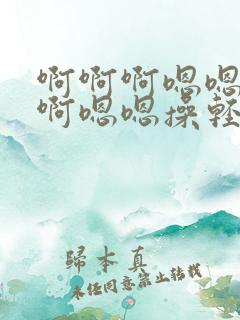 啊啊啊嗯嗯
啊嗯嗯操轻
歸本真
未经同意禁止转载